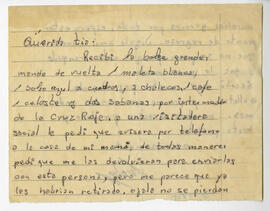 Querido tio:
Recibí la bolsa grande,
mande de vuelta 1 maleta blanca,
1 bolso azul a cuadros, 2 chalecas, 1 cafe
1 celeste y dos sabanas, por intermedio
de la Cruz-Roja, a una visitadora
social le pedi que avisera por telefono
a la casa de mi mamá, de todas maneras
pedi que me las devolvieran para enviarlas
con esta persona, pero me parece que ya
las habrian retirado, ojala no se pierdan